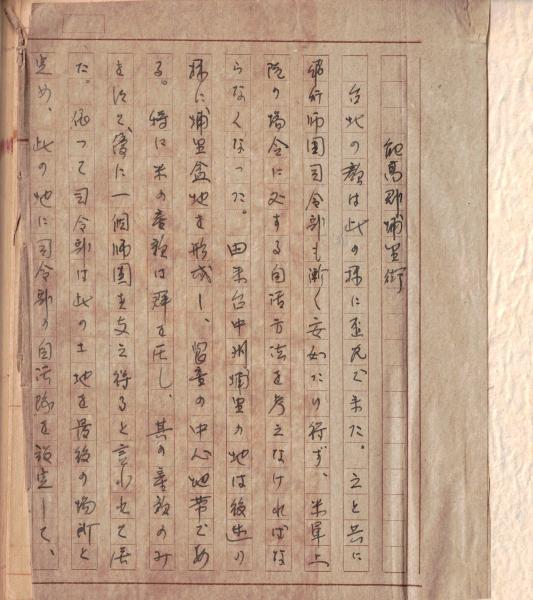 能高郡埔里街
台北の襲は此の様に歪んで来た。之と共に
師団司令部も漸く安如たり得ず、米軍上
陸の場合に処する自活方法を考えなければな
らなくなった。由来台中州埔里の地は後述の
様に埔里盆地を形成し、畜産の中心地帯であ
る。特に米の産額は群を圧し、其の産額のみ
を以て優に一個師団を支え得ると言われて居
た。依って司令部は此の土地を最後の場所と
定め、此の地に司令部の自活隊を設定して、